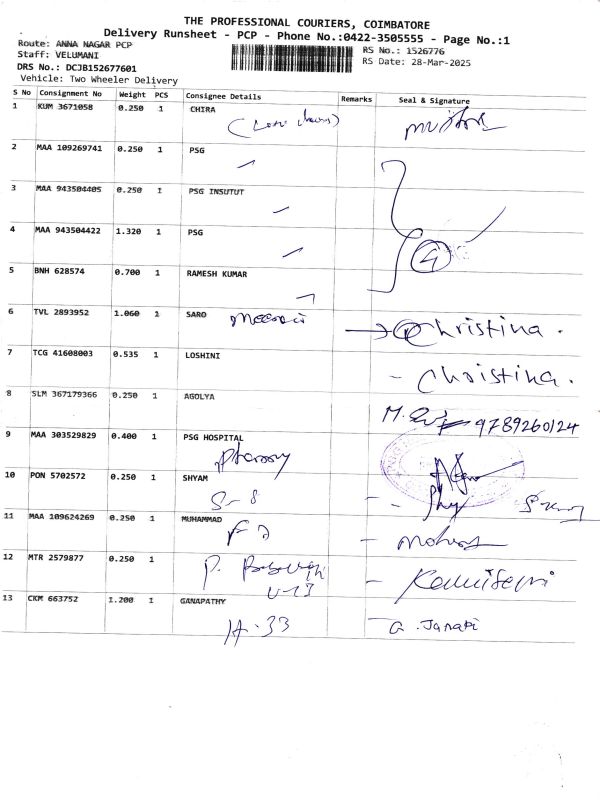 THE PROFESSIONAL COURIERS, COIMBATORE
Delivery Runsheet - PCP - Phone No.:0422-3505555 - Page No.:1
Route: ANNA NAGAR PCP
RS No.: 1526776
Staff: VELUMANI
RS Date: 28-Mar-2025
DRS No.: DCJB152677601
Vehicle: Two Wheeler Delivery
S No Consignment No Weight PCS Consignee Details Remarks Seal & Signature
1 KUM 3671058 0.250 1 CHIRA
2 MAA 109269741 0.250 1 PSG
3 MAA 943504405 0.250 1 PSG INSUTUT
4 MAA 943504422 1.320 1 PSG
4
5 BNH 628574 0.700 1 RAMESH KUMAR
6 TVL 2893952 1.060 1 SARO
Christina.
7 TCG 41608003 0.535 1 LOSHINI
- Christina.
8 SLM 367179366 0.250 1 AGOLYA
9789260124
9 MAA 303529829 0.400 1 PSG HOSPITAL
10 PON 5702572 0.250 1 SHYAM
S-8
11 MAA 109624269 0.250 1 MUHAMMAD
12 MTR 2579877 0.250 1
13 CKM 663752 1.200 1 GANAPATHY
H-33 G. Janaki